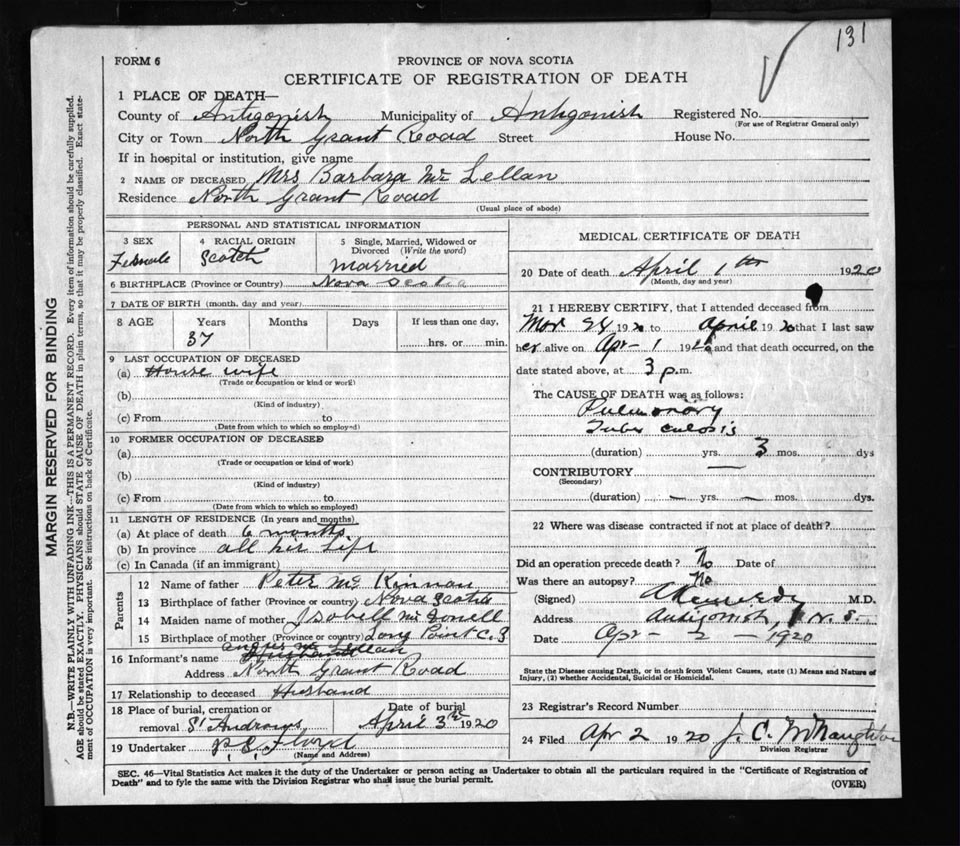 131
FORM 6
PROVINCE OF NOVA SCOTIA
CERTIFICATE OF REGISTRATION OF DEATH
1 PLACE OF DEATH—
County of Antigonish Municipality of Antigonish Registered No.
(For use of Registrar General only)
City or Town North Grant Road Street House No.
If in hospital or institution, give name
2 NAME OF DECEASED Mrs Barbara Mc Lellan
Residence North Grant Road
(Usual place of abode)
PERSONAL AND STATISTICAL INFORMATION
3 SEX Female
4 RACIAL ORIGIN Scotch
5 Single, Married, Widowed or Divorced (Write the word) married
6 BIRTHPLACE (Province or Country) Nova Scotia
7 DATE OF BIRTH (month, day and year)
8 AGE Years Months Days If less than one day,
37 hrs. or min.
9 LAST OCCUPATION OF DECEASED
(a) House wife
(Trade or occupation or kind or work)
(b)
(Kind of industry)
(c) From to
(Date from which to which so employed)
10 FORMER OCCUPATION OF DECEASED
(a)
(Trade or occupation or kind of work)
(b)
(Kind of industry)
(c) From to
(Date from which to which so employed)
11 LENGTH OF RESIDENCE (In years and months)
(a) At place of death 6 months
(b) In province all her Life
(c) In Canada (if an immigrant)
Parents
12 Name of father Peter Mc Kinnan
13 Birthplace of father (Province or country) Nova Scotia
14 Maiden name of mother Isabell Mc Donell
15 Birthplace of mother (Province or country) Long Point C. B
16 Informant's name Angus Mc Lellan
Address North Grant Road
17 Relationship to deceased Husband
18 Place of burial, cremation or removal St Andrews
Date of burial April 3rd 1920
19 Undertaker P. S. Floyd
(Name and Address)
MEDICAL CERTIFICATE OF DEATH
20 Date of death April 1st 1920
(Month, day and year)
21 I HEREBY CERTIFY, that I attended deceased from
Mar 1920 to April 1920 that I last saw
her alive on Apr - 1 1920 and that death occurred, on the
date stated above, at 3 p.m.
The CAUSE OF DEATH was as follows:
Pulmonary
Tuberculosis
(duration) yrs. 3 mos. dys
CONTRIBUTORY —
(Secondary)
(duration) — yrs. — mos. dys.
22 Where was disease contracted if not at place of death?
Did an operation precede death? No Date of
Was there an autopsy? No
(Signed) A Kennedy M.D.
Address Antigonish, N. S.
Date Apr - 2 - 1920
State the Disease causing Death, or in death from Violent Causes, state (1) Means and Nature of
Injury, (2) whether Accidental, Suicidal or Homicidal.
23 Registrar's Record Number
24 Filed Apr 2 1920 J. C. McNaughton
Division Registrar
SEC. 46—Vital Statistics Act makes it the duty of the Undertaker or person acting as Undertaker to obtain all the particulars required in the "Certificate of Registration of
Death" and to fyle the same with the Division Registrar who shall issue the burial permit.
(OVER)
MARGIN RESERVED FOR BINDING
N.B.—WRITE PLAINLY WITH UNFADING INK—THIS IS A PERMANENT RECORD. Every item of information should be carefully supplied.
AGE should be stated EXACTLY. PHYSICIANS should STATE CAUSE OF DEATH in plain terms, so that it may be properly classified. Exact state-
ment of OCCUPATION is very important. See instructions on back of Certificate.